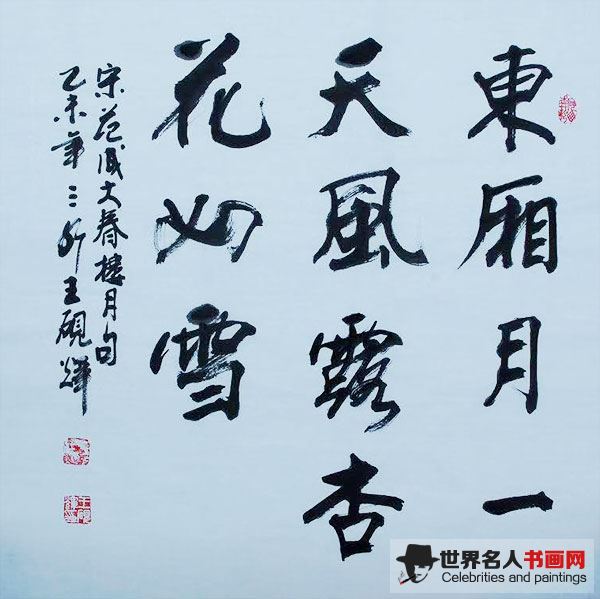 東厢月一
天風露杏
花如雪
宋范成大春樓月句
乙未年三王硯輝
世界名人书画网
Celebrities and paintings